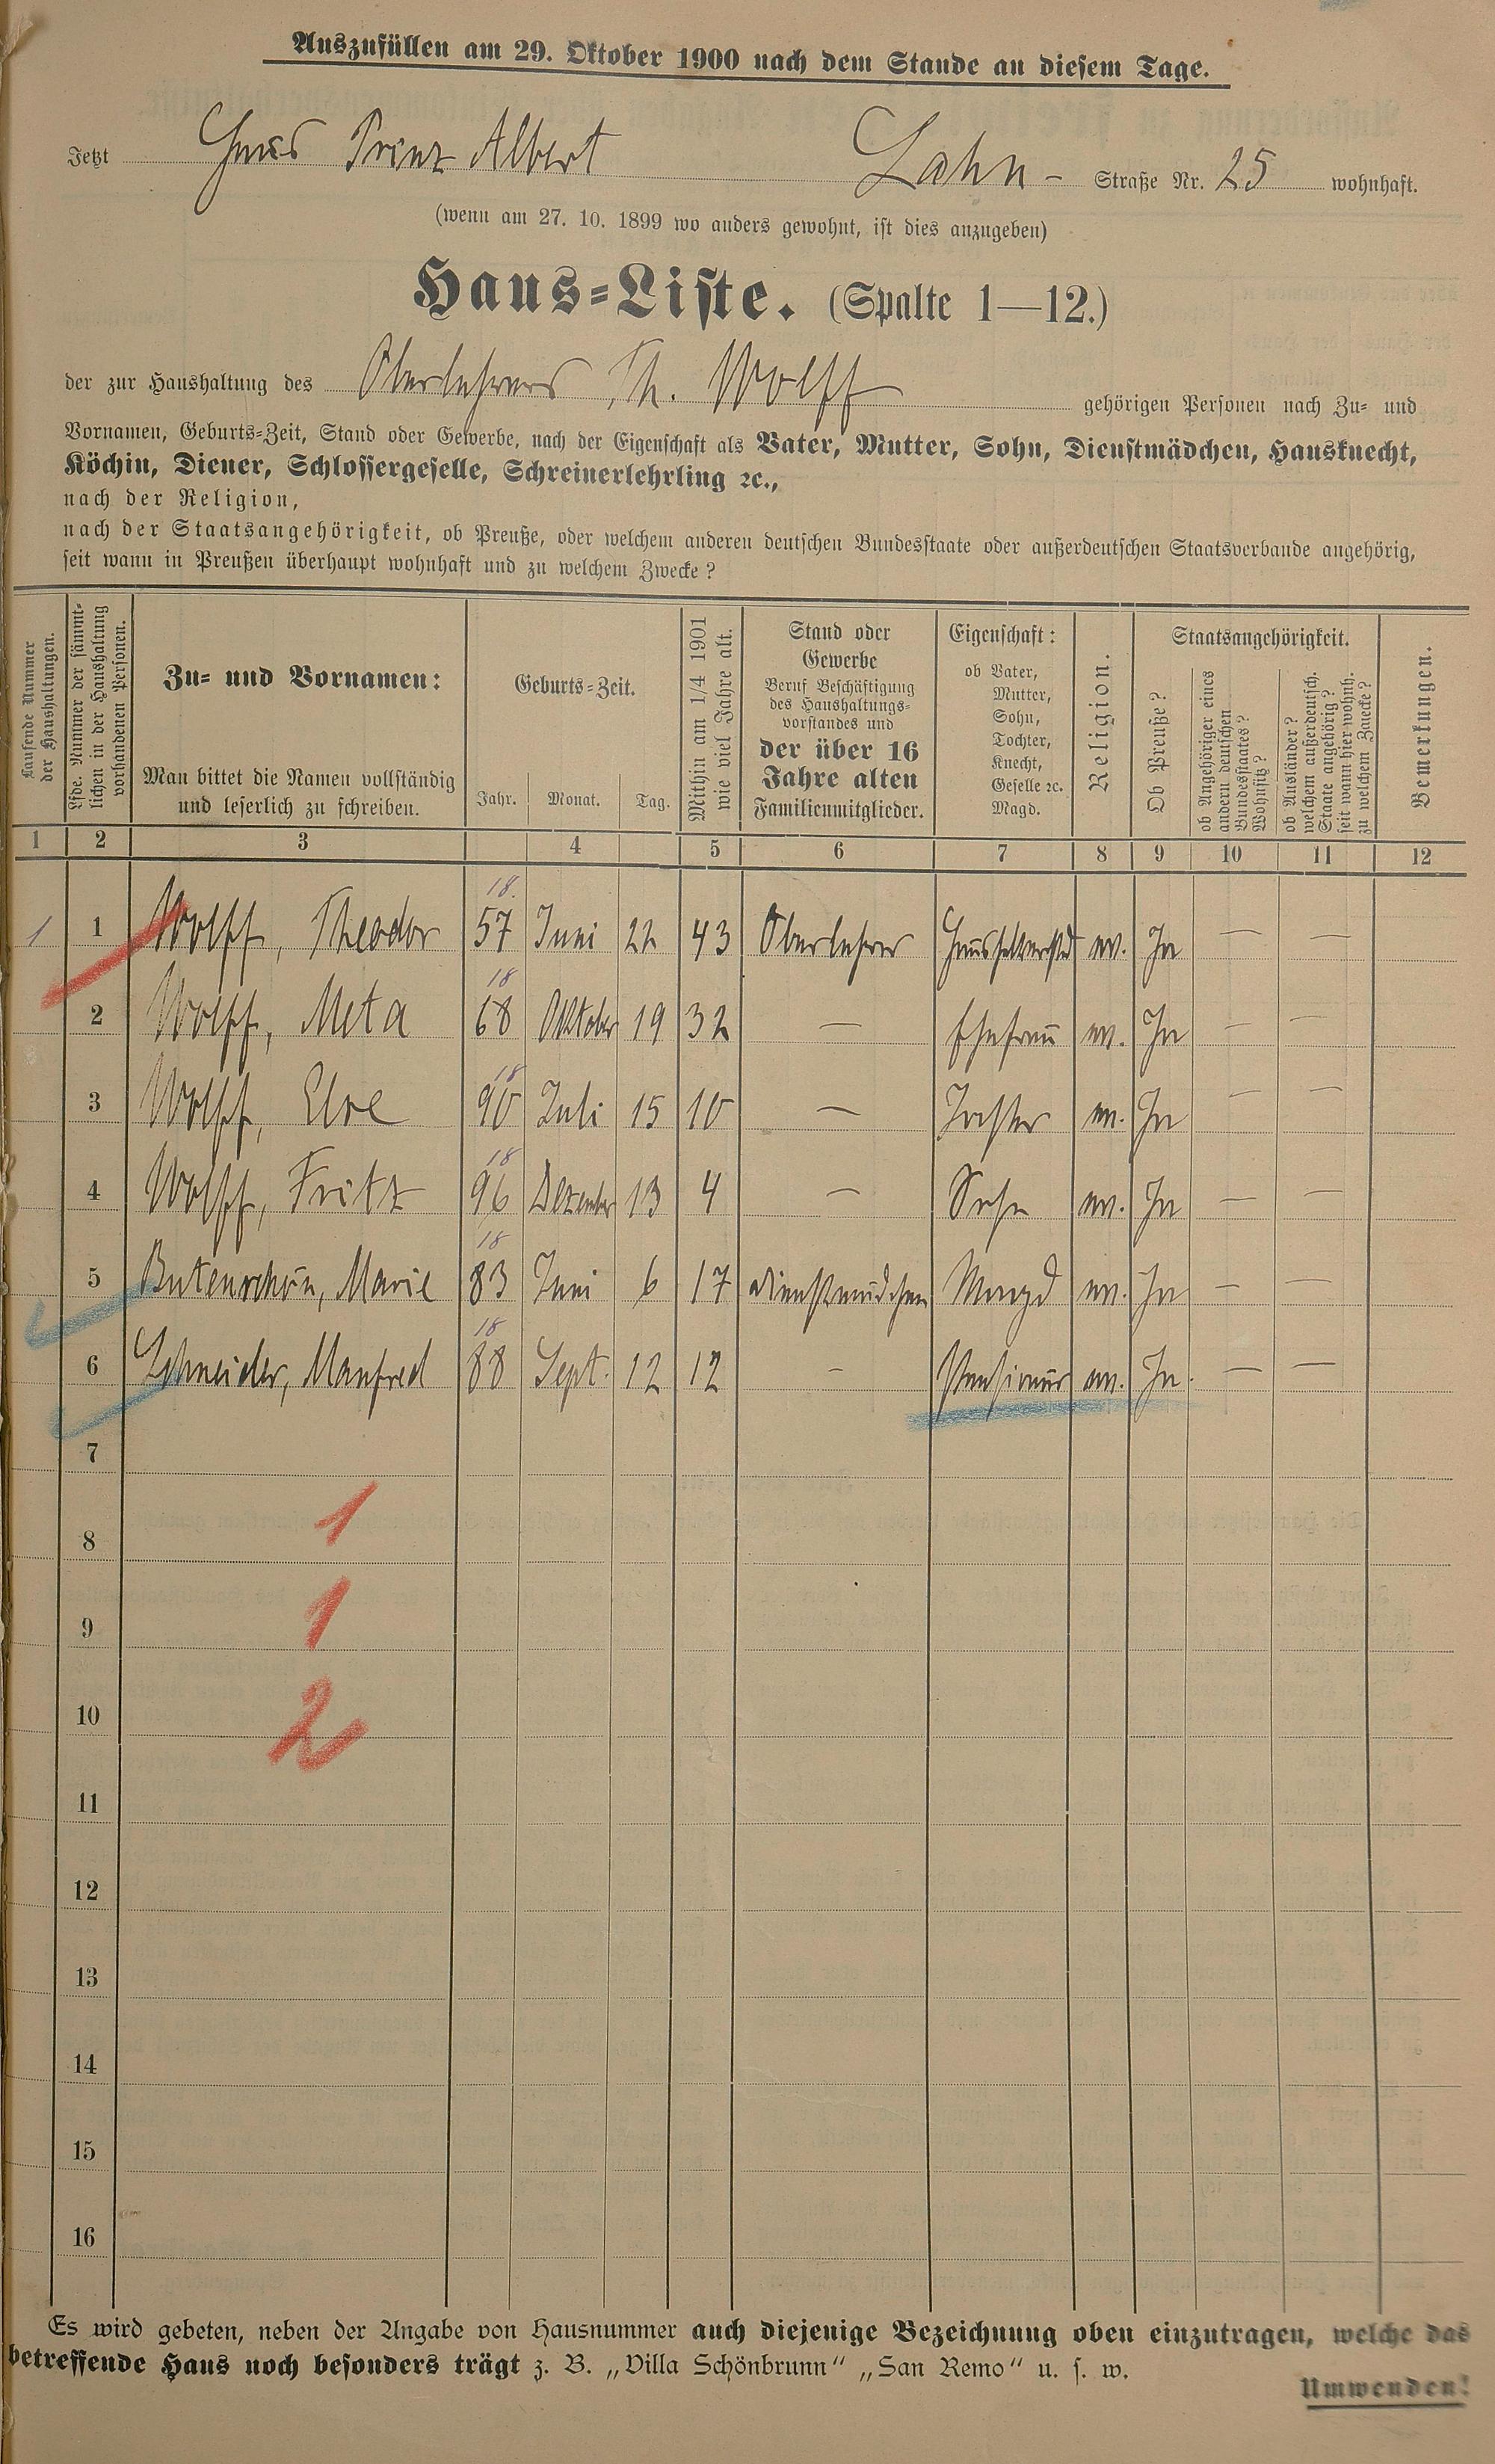 Auszufüllen am 29. Oktober 1900 nach dem Stande an diesem Tage.
Jetzt Haus Prinz Albert Lahn- Straße Nr. 25 wohnhaft.
(wenn am 27. 10. 1899 wo anders gewohnt, ist dies anzugeben)
Haus-Liste. (Spalte 1—12.)
der zur Haushaltung des Oberlehrers Th. Wolff gehörigen Personen nach Zu- und
Vornamen, Geburts-Zeit, Stand oder Gewerbe, nach der Eigenschaft als Vater, Mutter, Sohn, Dienstmädchen, Hausknecht,
Köchin, Diener, Schlossergeselle, Schreinerlehrling ꝛc.,
nach der Religion,
nach der Staatsangehörigkeit, ob Preuße, oder welchem anderen deutschen Bundesstaate oder außerdeutschen Staatsverbande angehörig,
seit wann in Preußen überhaupt wohnhaft und zu welchem Zwecke?
Laufende Nummer
der Haushaltungen.
Lfde. Nummer der sämmt-
lichen in der Haushaltung
vorhandenen Personen.
Zu- und Vornamen:
Man bittet die Namen vollständig
und leserlich zu schreiben.
Geburts-Zeit.
Jahr. Monat. Tag.
Mithin am 1/4 1901
wie viel Jahre alt.
Stand oder
Gewerbe
Beruf Beschäftigung
des Haushaltungs-
vorstandes und
der über 16
Jahre alten
Familienmitglieder.
Eigenschaft:
ob Vater,
Mutter,
Sohn,
Tochter,
Knecht,
Geselle ꝛc.
Magd.
Religion.
Staatsangehörigkeit.
Ob Preuße?
ob Angehöriger eines
andern deutschen
Bundesstaates?
Wohnsitz?
ob Ausländer?
welchem außerdeutsch.
Staate angehörig?
seit wann hier wohnh.
zu welchem Zwecke?
Bemerkungen.
1 2 3 4 5 6 7 8 9 10 11 12
1 1 Wolff, Theodor 18 57 Juni 22 43 Oberlehrer Haushaltvorstd ev. Ja — —
2 Wolff, Meta 18 68 Oktober 19 32 — Ehefrau ev. Ja — —
3 Wolff, Else 18 90 Juli 15 10 — Tochter ev. Ja — —
4 Wolff, Fritz 18 96 Dezember 13 4 — Sohn ev. Ja — —
5 Butenschön, Marie 18 83 Juni 6 17 Dienstmädchen Magd ev. Ja — —
6 Schneider, Manfred 18 88 Sept. 12 12 — Pensionär ev. Ja. — —
7
8 1
9 1
10 2
11
12
13
14
15
16
Es wird gebeten, neben der Angabe von Hausnummer auch diejenige Bezeichnung oben einzutragen, welche das
betreffende Haus noch besonders trägt z. B. „Villa Schönbrunn“ „San Remo“ u. s. w.
Umwenden!